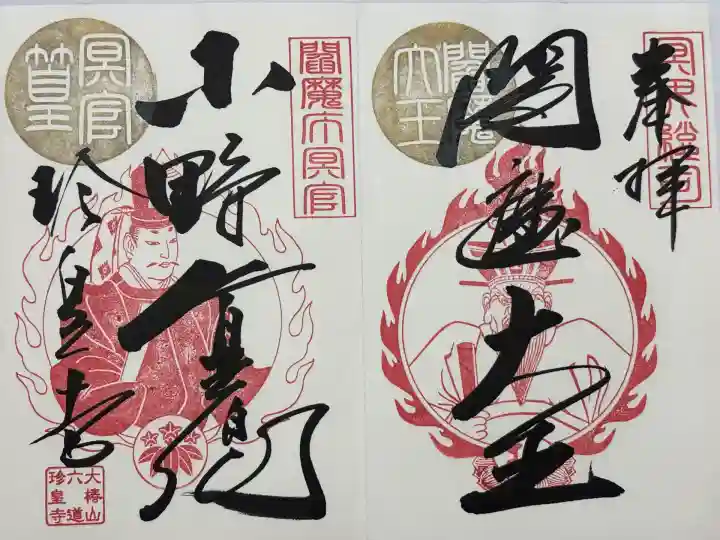 奉拝
閻魔大王
閻魔
大王
閻魔庁冥官
小野篁卿
冥官
珍皇寺
大椿山
六道
珍皇寺